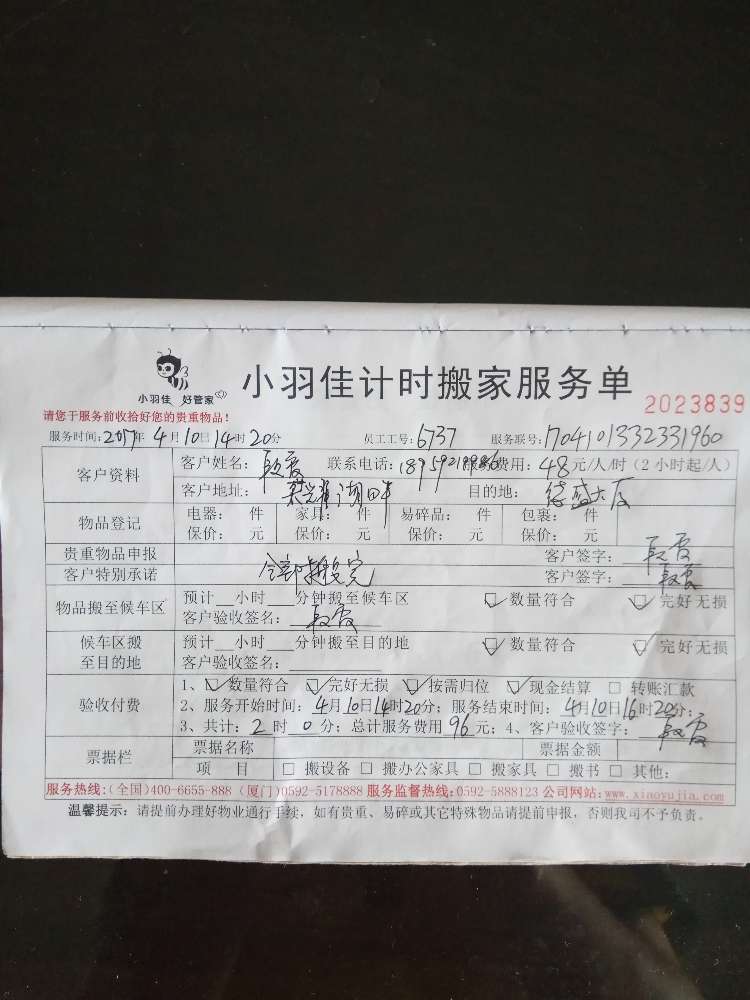 小羽佳 好管家
小羽佳计时搬家服务单
2023839
请您于服务前收拾好您的贵重物品！
服务时间：2017年 4月10日14时20分 员工工号：6737 服务联号：1704101332331960
客户资料
客户姓名：段霞 联系电话： 服务费用：48元/人/时（2小时起/人）
客户地址： 湖畔 目的地：德盛大厦
物品登记
电器： 件 家具： 件 易碎品： 件 包裹： 件
保价： 元 保价： 元 保价： 元 保价： 元
贵重物品申报 客户签字：段霞
客户特别承诺 全部搬完 客户签字：段霞
物品搬至候车区
预计__小时__分钟搬至候车区 数量符合 完好无损
客户验收签名：段霞
候车区搬
至目的地
预计__小时__分钟搬至目的地 数量符合 完好无损
客户验收签名：
验收付费
1、数量符合 完好无损 按需归位 现金结算 □ 转账汇款
2、服务开始时间：4月10日14时20分；服务结束时间：4月10日16时20分；
3、共计：2时 0分；总计服务费用96元；4、客户验收签字：段霞
票据栏
票据名称 票据金额
项 目 □ 搬设备 □ 搬办公家具 □ 搬家具 □ 搬书 □ 其他：
服务热线：（全国）400-6655-888（厦门）0592-5178888 服务监督热线：0592-5888123 公司网站：www.xiaoyujia.com
温馨提示：请提前办理好物业通行手续，如有贵重、易碎或其它特殊物品请提前申报，否则我司不予负责。